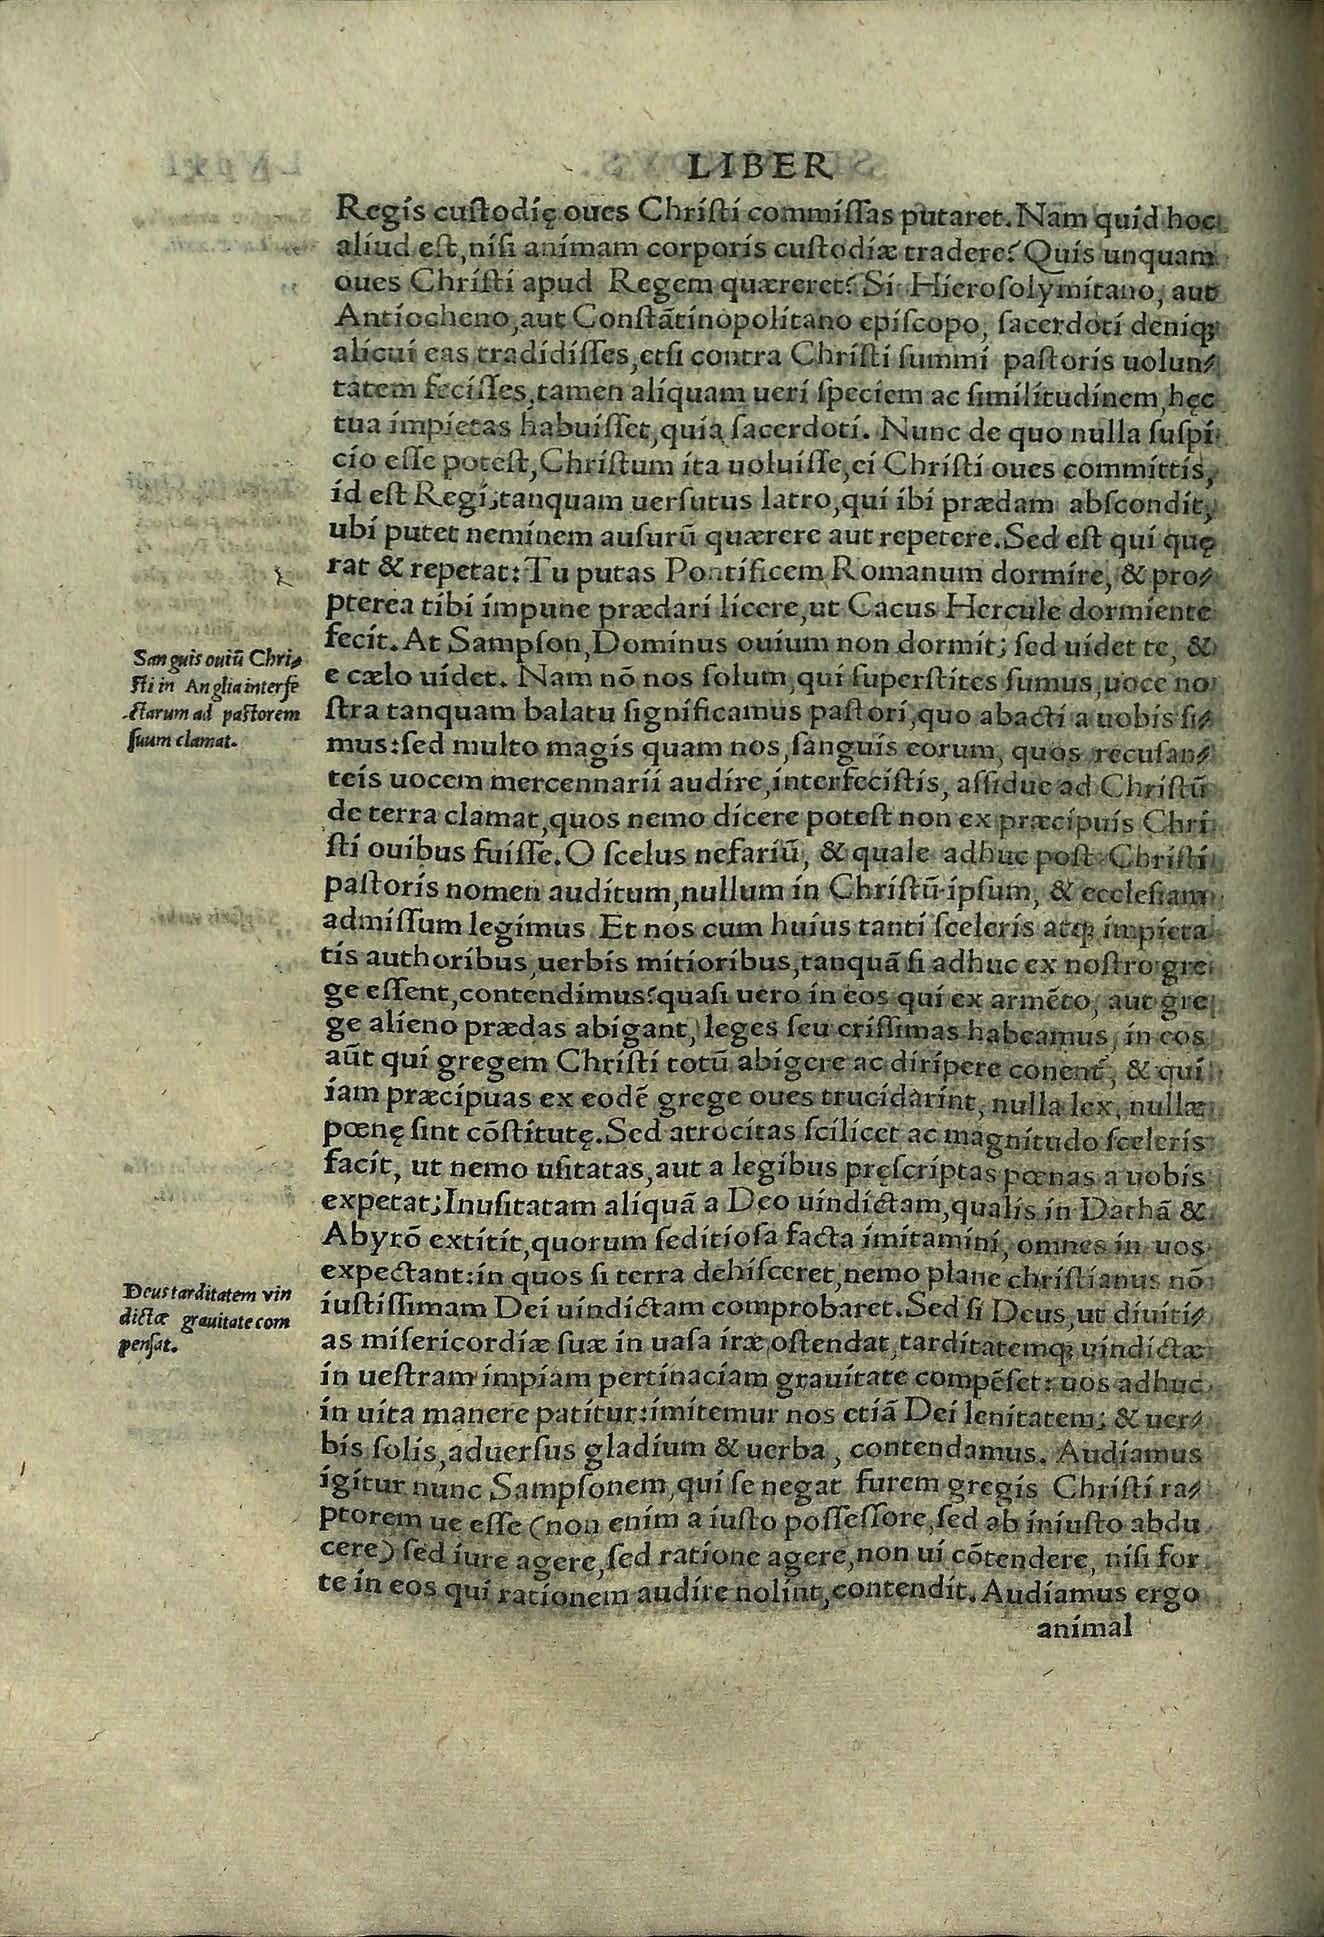 LIBER
Regis cuſtodię oues Chriſti commiſſas putaret. Nam quid hoc
aliud eſt, niſi animam corporis cuſtodiæ tradere? Quis unquam
oues Chriſti apud Regem quæreret? Si Hieroſolymitano, aut
Antiocheno, aut Conſtãtinopolitano epiſcopo, ſacerdoti deniqꝫ
alicui eas tradidiſſes, etſi contra Chriſti ſummi paſtoris uolun⸗
tatem feciſſes, tamen aliquam ueri ſpeciem ac ſimilitudinem, hęc
tua impietas habuiſſet, quia ſacerdoti. Nunc de quo nulla ſuſpi
cio eſſe poteſt, Chriſtum ita uoluiſſe, ei Chriſti oues committis,
id eſt Regi; tanquam uerſutus latro, qui ibi prædam abſcondit,
ubi putet neminem auſurũ quærere aut repetere. Sed eſt qui quę
rat & repetat: Tu putas Pontificem Romanum dormire, & pro⸗
pterea tibi impune prædari licere, ut Cacus Hercule dormiente
fecit. At Sampſon, Dominus ouium non dormit; ſed uidet te, &
e cælo uidet. Nam nõ nos ſolum, qui ſuperſtites ſumus, uoce no
ſtra tanquam balatu ſignificamus paſtori, quo abacti a uobis ſi⸗
mus: ſed multo magis quam nos, ſanguis eorum, quos recuſan⸗
teis uocem mercennarii audire, interfeciſtis, aſſidue ad Chriſtũ
de terra clamat, quos nemo dicere poteſt non ex præcipuis Chri
ſti ouibus fuiſſe. O ſcelus nefariũ, & quale adhuc poſt Chriſti
paſtoris nomen auditum, nullum in Chriſtũ ipſum, & eccleſiam
admiſſum legimus. Et nos cum huius tanti ſceleris atqꝫ impieta
tis authoribus, uerbis mitioribus, tanquã ſi adhuc ex noſtro gre
ge eſſent, contendimus? quaſi uero in eos qui ex armẽto, aut gre
ge alieno prædas abigant, leges ſeueriſſimas habeamus, in eos
aũt qui gregem Chriſti totũ abigere ac diripere conent᷑, & qui
iam præcipuas ex eodẽ grege oues trucidarint, nulla lex, nullæ
pœnę ſint cõſtitutę. Sed atrocitas ſcilicet ac magnitudo ſceleris
facit, ut nemo uſitatas, aut a legibus pręſcriptas pœnas a uobis
expetat; Inuſitatam aliquã a Deo uindictam, qualis in Dathã &
Abyrõ extitit, quorum ſeditioſa facta imitamini, omnes in uos
expectant: in quos ſi terra dehiſceret, nemo plane chriſtianus nõ
iuſtiſſimam Dei uindictam comprobaret. Sed ſi Deus, ut diuiti⸗
as miſericordiæ ſuæ in uaſa iræ oſtendat, tarditatemqꝫ uindictæ
in ueſtram impiam pertinaciam grauitate compẽſet: uos adhuc
in uita manere patitur: imitemur nos etiã Dei lenitatem; & uer⸗
bis ſolis, aduerſus gladium & uerba, contendamus. Audiamus
igitur nunc Sampſonem, qui ſe negat furem gregis Chriſti ra⸗
ptorem ue eſſe (non enim a iuſto poſſeſſore, ſed ab iniuſto abdu
cere) ſed iure agere, ſed ratione agere, non ui cõtendere, niſi for
te in eos qui rationem audire nolint, contendit. Audiamus ergo
animal
Sanguis ouiũ Chri⸗
ſti in Anglia interfe
ctarum ad paſtorem
ſuum clamat.
Deus tarditatem vin
dictæ grauitate com
penſat.